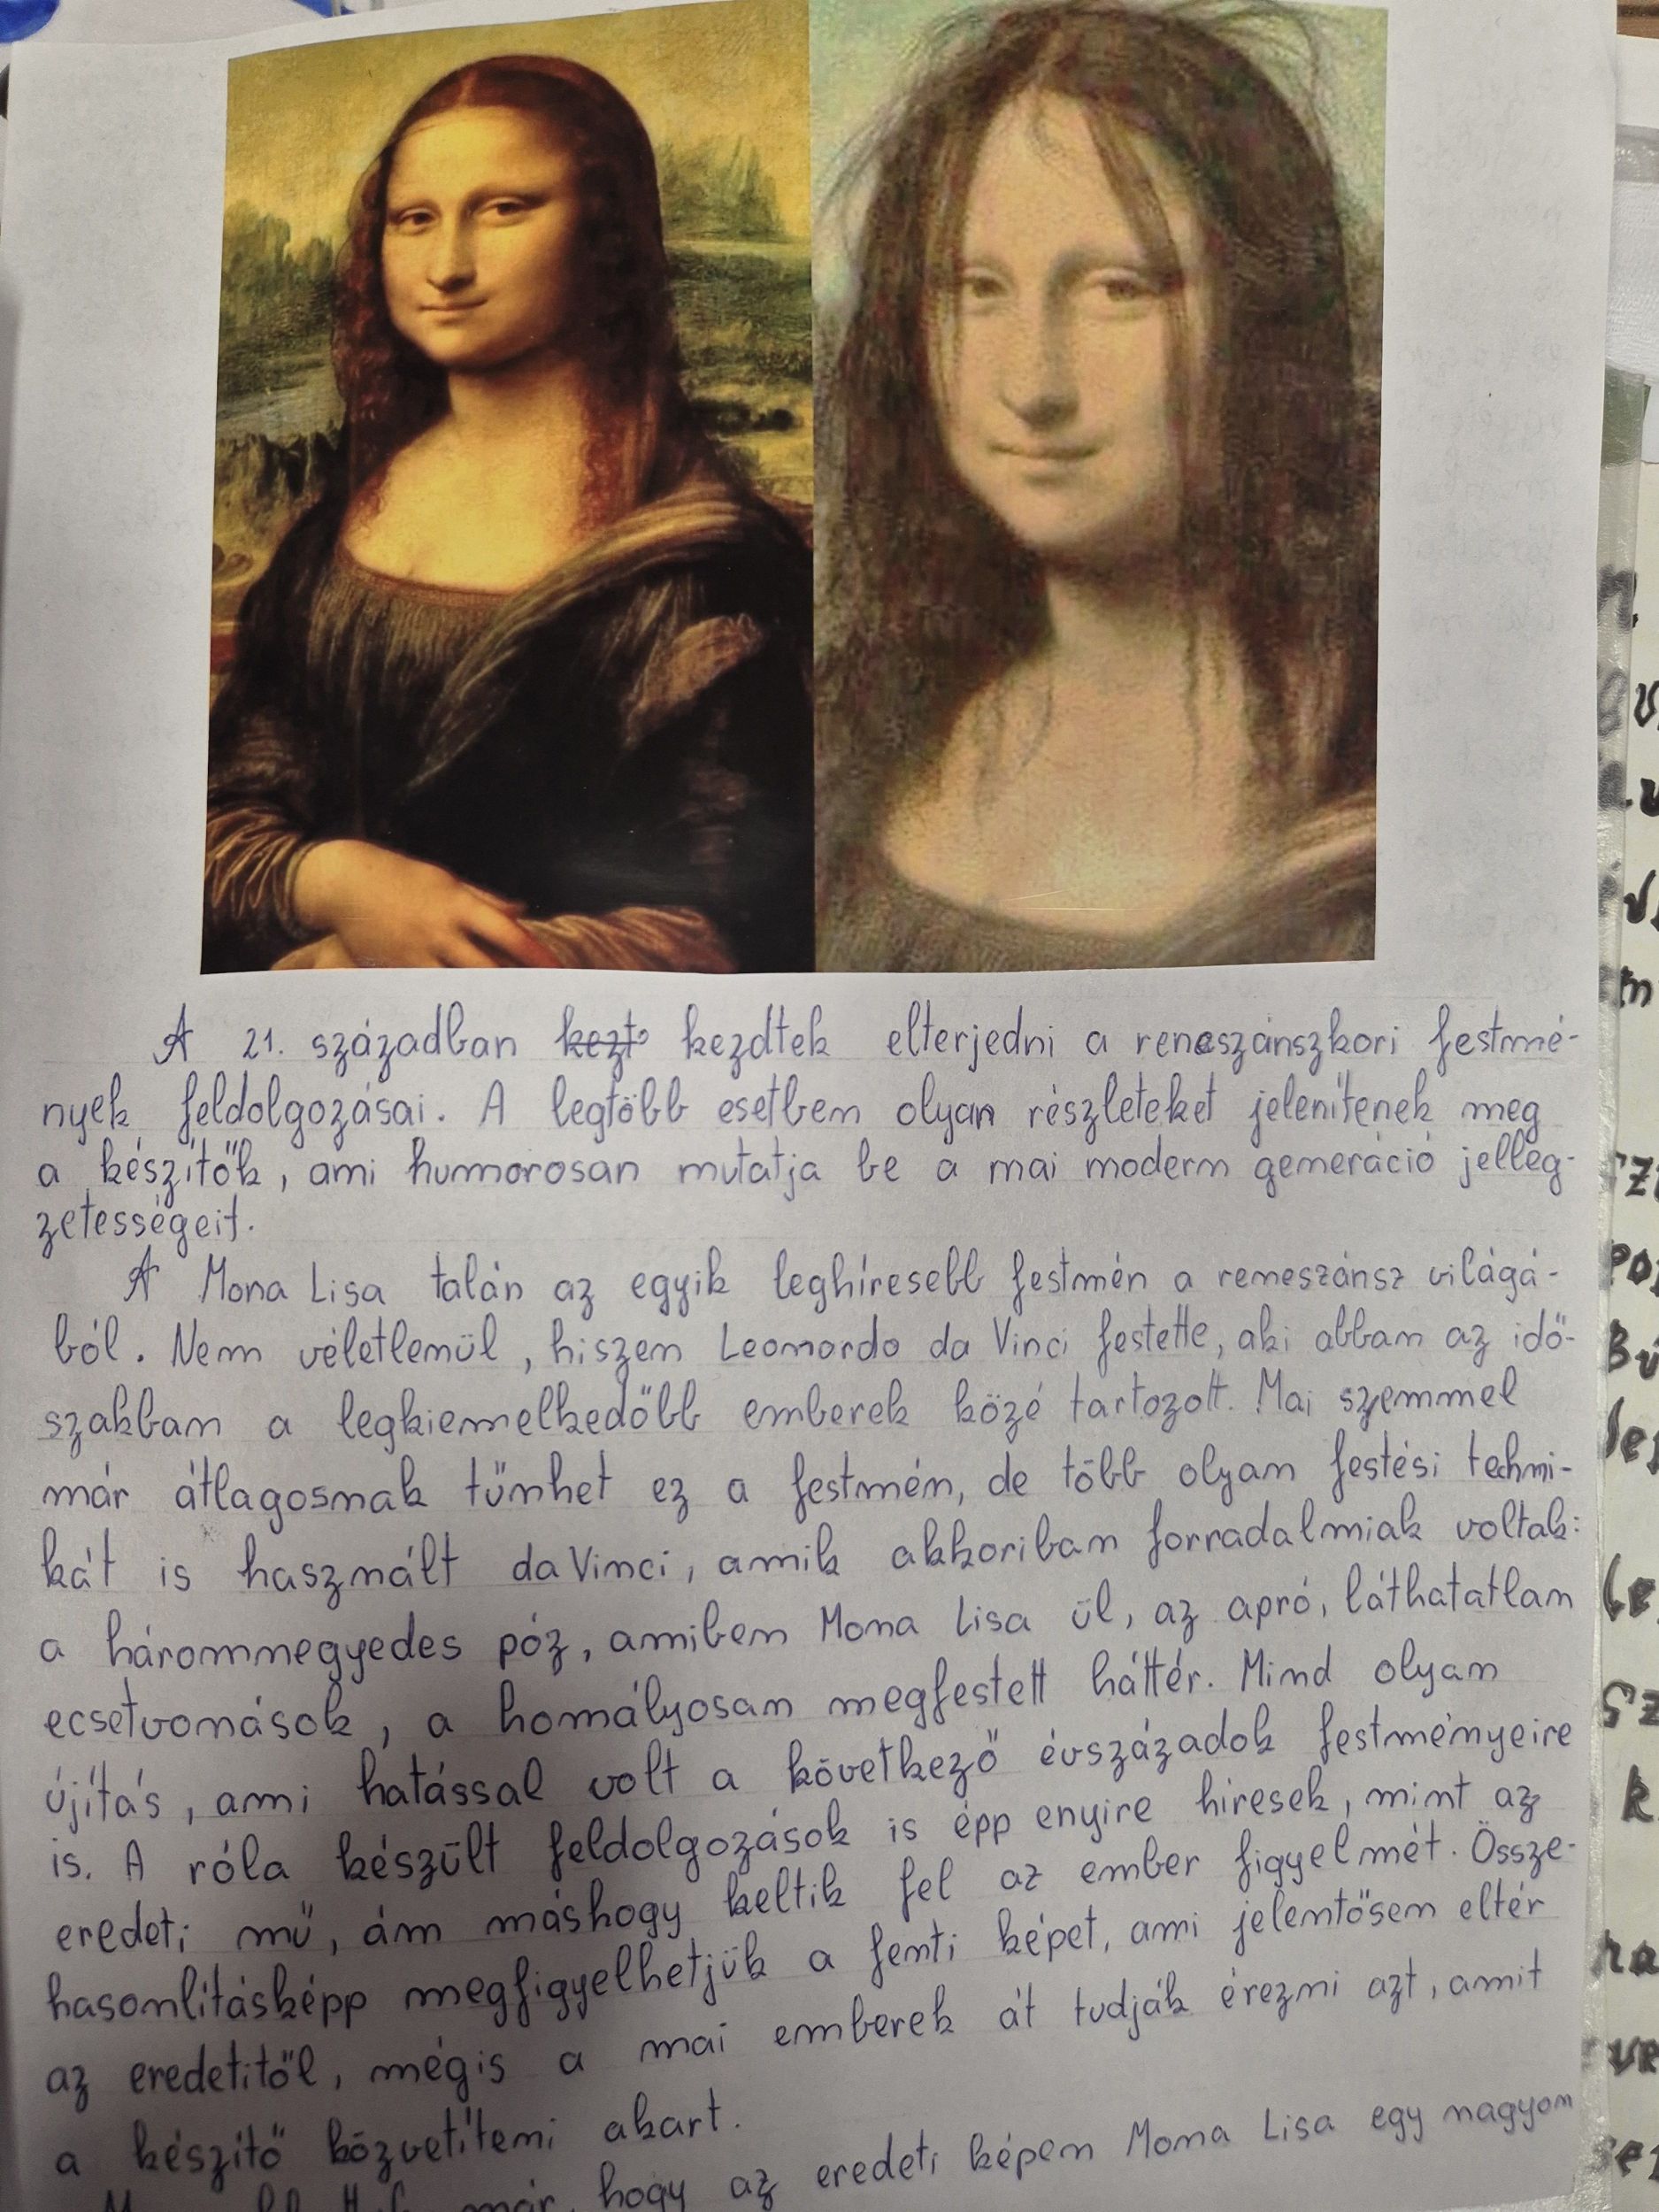 A 21. században kezt kezdtek elterjedni a reneszánszkori festmé-
nyek feldolgozásai. A legtöbb esetben olyan részleteket jelenítenek meg
a készítők, ami humorosan mutatja be a mai modern generáció jelleg-
zetességeit.
A Mona Lisa talán az egyik leghíresebb festmén a reneszánsz világá-
ból. Nem véletlenül, hiszen Leonardo da Vinci festette, aki abban az idő-
szakban a legkiemelkedőbb emberek közé tartozott. Mai szemmel
már átlagosnak tűnhet ez a festmén, de több olyan festési techni-
kát is használt da Vinci, amik akkoriban forradalmiak voltak:
a háromnegyedes póz, amiben Mona Lisa ül, az apró, láthatatlan
ecsetvonások, a homályosan megfestett háttér. Mind olyan
újítás, ami hatással volt a következő évszázadok festményeire
is. A róla készült feldolgozások is épp enyire híresek, mint az
eredeti mű, ám máshogy keltik fel az ember figyelmét. Össze-
hasonlításképp megfigyelhetjük a fenti képet, ami jelentősen eltér
az eredetitől, mégis a mai emberek át tudják érezni azt, amit
a készítő közvetíteni akart.
már, hogy az eredeti képen Mona Lisa egy nagyon